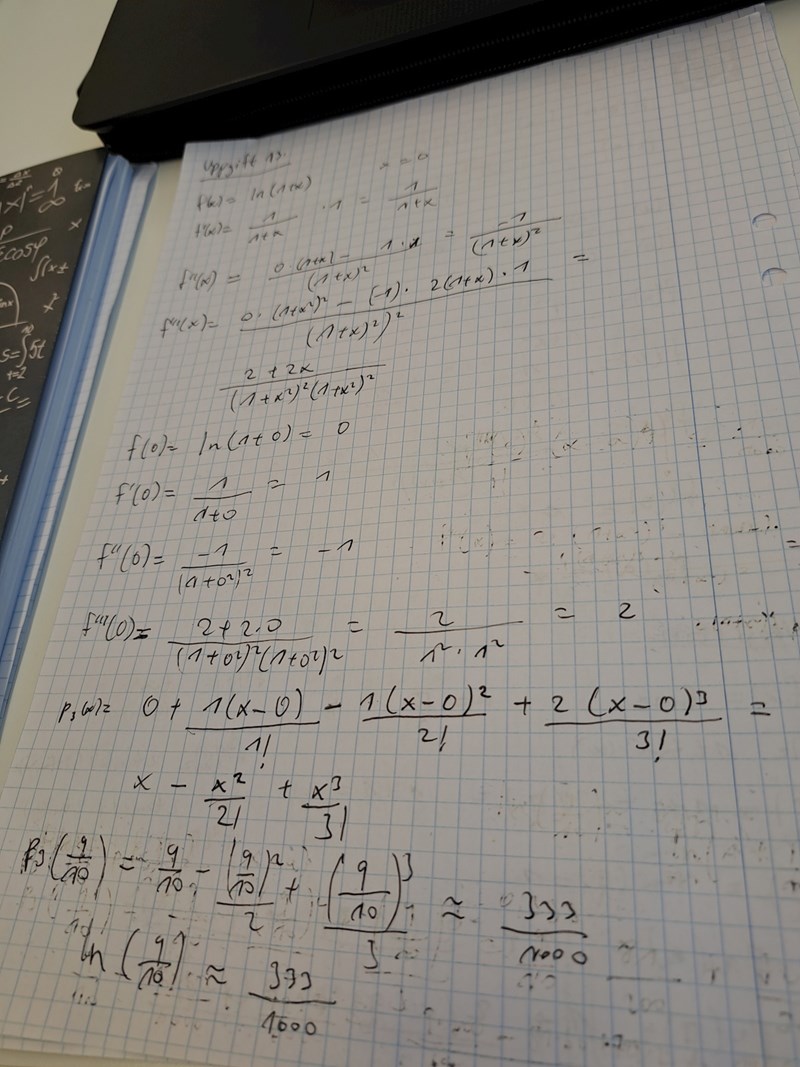 Uppgift 13.
f(x) = ln(1+x) x = 0
f'(x) = 1/(1+x) · 1 = 1/(1+x)
f''(x) = (0·(1+x) − 1·x)/(1+x)² = −1/(1+x)²
f'''(x) = (0·(1+x²)² − (−1)·2(1+x)·1)/(1+x)²)² =
(2+2x)/((1+x²)²(1+x²)²)
f(0) = ln(1+0) = 0
f'(0) = 1/(1+0) = 1
f''(0) = −1/(1+0²)² = −1
f'''(0) = (2+2·0)/((1+0²)²(1+0²)²) = 2/(1²·1²) = 2
p₃(x) = 0 + 1(x−0)/1! − 1(x−0)²/2! + 2(x−0)³/3! =
x − x²/2! + x³/3!
p₃(9/10) = 9/10 − (9/10)²/2 + (9/10)³/3 ≈ 333/1000
ln(9/10) ≈ 333/1000